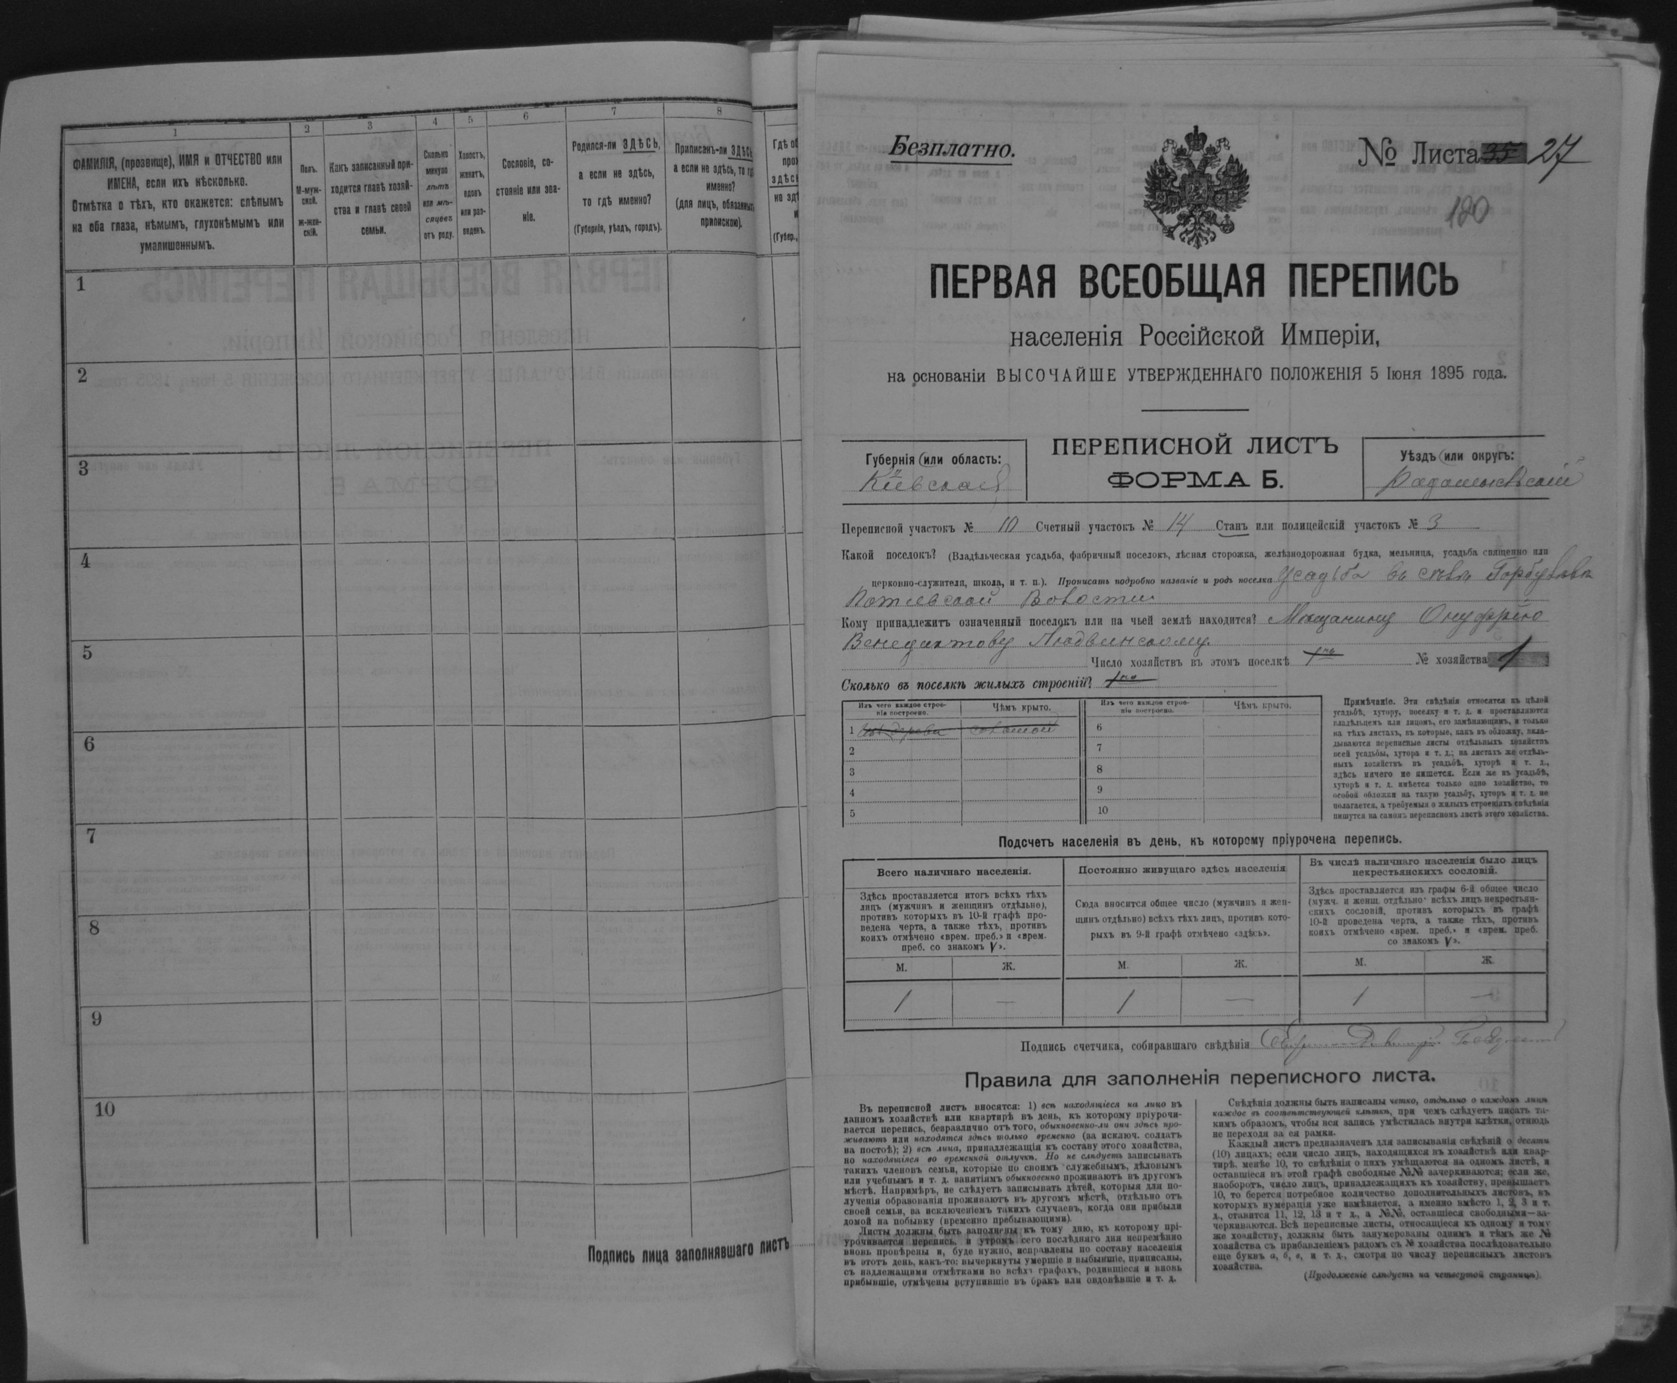 1
ФАМИЛІЯ, (прозвище), ИМЯ и ОТЧЕСТВО или
ИМЕНА, если ихъ нѣсколько.
Отмѣтка о тѣхъ, кто окажется: слѣпымъ
на оба глаза, нѣмымъ, глухонѣмымъ или
умалишеннымъ.
2
Полъ.
М-муж-
ской.
Ж-жен-
скій.
3
Какъ записанный при-
ходится главѣ хозяй-
ства и главѣ своей
семьи.
4
Сколько
минуло
лѣтъ
или мѣ-
сяцевъ
отъ роду.
5
Холостъ,
женатъ,
вдовъ
или раз-
веденъ.
6
Сословіе, со-
стояніе или зва-
ніе.
7
Родился-ли ЗДѢСЬ,
а если не здѣсь,
то гдѣ именно?
(Губернія, уѣздъ, городъ).
8
Приписанъ-ли ЗДѢСЬ,
а если не здѣсь, то гдѣ
именно?
(для лицъ, обязанныхъ
припискою).
1
2
3
4
5
6
7
8
9
10
Подпись лица заполнявшаго листъ
Безплатно.
№ Листа 35 27
180
ПЕРВАЯ ВСЕОБЩАЯ ПЕРЕПИСЬ
населенія Россійской Имперіи,
на основаніи ВЫСОЧАЙШЕ УТВЕРЖДЕННАГО ПОЛОЖЕНІЯ 5 Іюня 1895 года.
Губернія (или область:
Кіевская
ПЕРЕПИСНОЙ ЛИСТЪ
ФОРМА Б.
Уѣздъ (или округъ:
Радомысльскій
Переписной участокъ № 10 Счетный участокъ № 14 Станъ или полицейскій участокъ № 3
Какой поселокъ? (Владѣльческая усадьба, фабричный поселокъ, лѣсная сторожка, желѣзнодорожная будка, мельница, усадьба священно или
церковно-служителя, школа, и т. п.). Прописать подробно названіе и родъ поселка Усадьба въ селѣ
Потіевской Волости
Кому принадлежитъ означенный поселокъ или на чьей землѣ находится? Мѣщанину Онуфрію
Венедиктову
Число хозяйствъ въ этомъ поселкѣ № хозяйства 1
Сколько въ поселкѣ жилыхъ строеній?
Изъ чего каждое строе-
ніе построено.
Чѣмъ крыто.
Изъ чего каждое строе-
ніе построено.
Чѣмъ крыто.
1 дерева соломой
2
3
4
5
6
7
8
9
10
Примѣчаніе. Эти свѣдѣнія относятся къ цѣлой
усадьбѣ, хутору, поселку и т. д. и проставляются
владѣльцемъ или лицомъ, его замѣняющимъ, и только
на тѣхъ листахъ, въ которые, какъ въ обложку, вкла-
дываются переписные листы отдѣльныхъ хозяйствъ
всей усадьбы, хутора и т. д.; на листахъ же отдѣль-
ныхъ хозяйствъ въ усадьбѣ, хуторѣ и т. д.,
здѣсь ничего не пишется. Если же въ усадьбѣ,
хуторѣ и т. д. имѣется только одно хозяйство, то
особой обложки на такую усадьбу, хуторъ и т. д. не
полагается, а требуемыя о жилыхъ строеніяхъ свѣдѣнія
пишутся на самомъ переписномъ листѣ этого хозяйства.
Подсчетъ населенія въ день, къ которому пріурочена перепись.
Всего наличнаго населенія.
Здѣсь проставляется итогъ всѣхъ тѣхъ
лицъ (мужчинъ и женщинъ отдѣльно),
противъ которыхъ въ 10-й графѣ про-
ведена черта, а также тѣхъ, противъ
коихъ отмѣчено «врем. преб.» и «врем.
преб. со знакомъ V».
М. Ж.
1 —
Постоянно живущаго здѣсь населенія
Сюда вносится общее число (мужчинъ и жен-
щинъ отдѣльно) всѣхъ тѣхъ лицъ, противъ кото-
рыхъ въ 9-й графѣ отмѣчено «здѣсь».
М. Ж.
1 —
Въ числѣ наличнаго населенія было лицъ
некрестьянскихъ сословій.
Здѣсь проставляется изъ графы 6-й общее число
(мужч. и женщ. отдѣльно) всѣхъ лицъ некрестьян-
скихъ сословій, противъ которыхъ въ графѣ
10-й проведена черта, а также тѣхъ, противъ
коихъ отмѣчено «врем. преб.» и «врем. преб.
со знакомъ V».
М. Ж.
1 —
Подпись счетчика, собиравшаго свѣдѣнія
Правила для заполненія переписного листа.
Въ переписной листъ вносятся: 1) всѣ находящіеся на лицо въ
данномъ хозяйствѣ или квартирѣ въ день, къ которому пріурочи-
вается перепись, безразлично отъ того, обыкновенно-ли они здѣсь про-
живаютъ или находятся здѣсь только временно (за исключ. солдатъ
на постоѣ); 2) всѣ лица, принадлежащія къ составу этого хозяйства,
но находящіяся во временной отлучкѣ. Но не слѣдуетъ записывать
такихъ членовъ семьи, которые по своимъ служебнымъ, дѣловымъ
или учебнымъ и т. д. занятіямъ обыкновенно проживаютъ въ другомъ
мѣстѣ. Напримѣръ, не слѣдуетъ записывать дѣтей, которыя для по-
лученія образованія проживаютъ въ другомъ мѣстѣ, отдѣльно отъ
своей семьи, за исключеніемъ такихъ случаевъ, когда они прибыли
домой на побывку (временно пребывающими).
Листы должны быть заполнены къ тому дню, къ которому прі-
урочивается перепись, и утромъ сего послѣдняго дня непремѣнно
вновь провѣрены и, буде нужно, исправлены по составу населенія
въ этотъ день, какъ-то: вычеркнуты умершіе и выбывшіе, приписаны,
съ надлежащими отмѣтками во всѣхъ графахъ, родившіеся и вновь
прибывшіе, отмѣчены вступившіе въ бракъ или овдовѣвшіе и т. д.
Свѣдѣнія должны быть написаны четко, отдѣльно о каждомъ лицѣ
каждое въ соотвѣтствующей клѣткѣ, при чемъ слѣдуетъ писать та-
кимъ образомъ, чтобы вся запись умѣстилась внутри клѣтки, отнюдь
не переходя за ея рамки.
Каждый листъ предназначенъ для записыванія свѣдѣній о десяти
(10) лицахъ; если число лицъ, находящихся въ хозяйствѣ или квар-
тирѣ, менѣе 10, то свѣдѣнія о нихъ умѣщаются на одномъ листѣ, а
оставшіеся въ этой графѣ свободные №№ зачеркиваются; если же,
наоборотъ, число лицъ, принадлежащихъ къ хозяйству, превышаетъ
10, то берется потребное количество дополнительныхъ листовъ, въ
которыхъ нумерація уже измѣняется, а именно вмѣсто 1, 2, 3 и т.
д., ставится 11, 12, 13 и т. д., а №№, оставшіеся свободными—за-
черкиваются. Всѣ переписные листы, относящіеся къ одному и тому
же хозяйству, должны быть занумерованы однимъ и тѣмъ же №
хозяйства съ прибавленіемъ рядомъ съ № хозяйства послѣдовательно
еще буквъ а, б, в, и т. д., смотря по числу переписныхъ листовъ
хозяйства.
(Продолженіе слѣдуетъ на четвертой страницѣ).